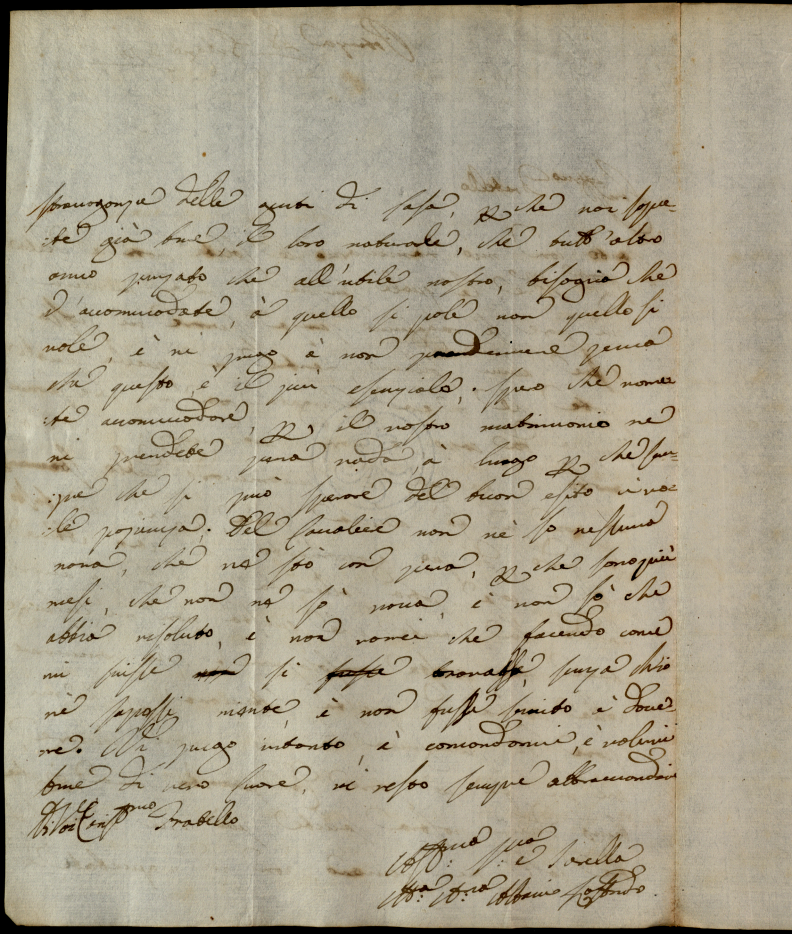 stravaganza delle genti di Casa, p che voi sape=
:te già bene, il loro naturale, che tutt'altro
anno penzato che all'utile nostro, bisogna che
d'accomodate, à quello si pole non quello si
vole, è vi prego à non prendervene pena
che questo è il più esenziale, spero che
:te accomodare, p il nostro matrimonio ne
vi prendete pena nada, à lungo p che sem=
:pre che si può sperare del buon esito ci vo=
:le pazienza. Del Cavaliere non nè so nessuna
nova, che ne stò con pena, p che sono più
mesi, che non ne sò nova, è non sò che
abbia risoluto, è non vorrei che facendo come
mi scrisse non si fusse senza chio
nè sapessi niente è non fusse
Vi prego intanto, è comandarmi, è volermi
bene di vero Cuore, vi resto sempre abbracciandovi
Di Voi Fratello
Sorella